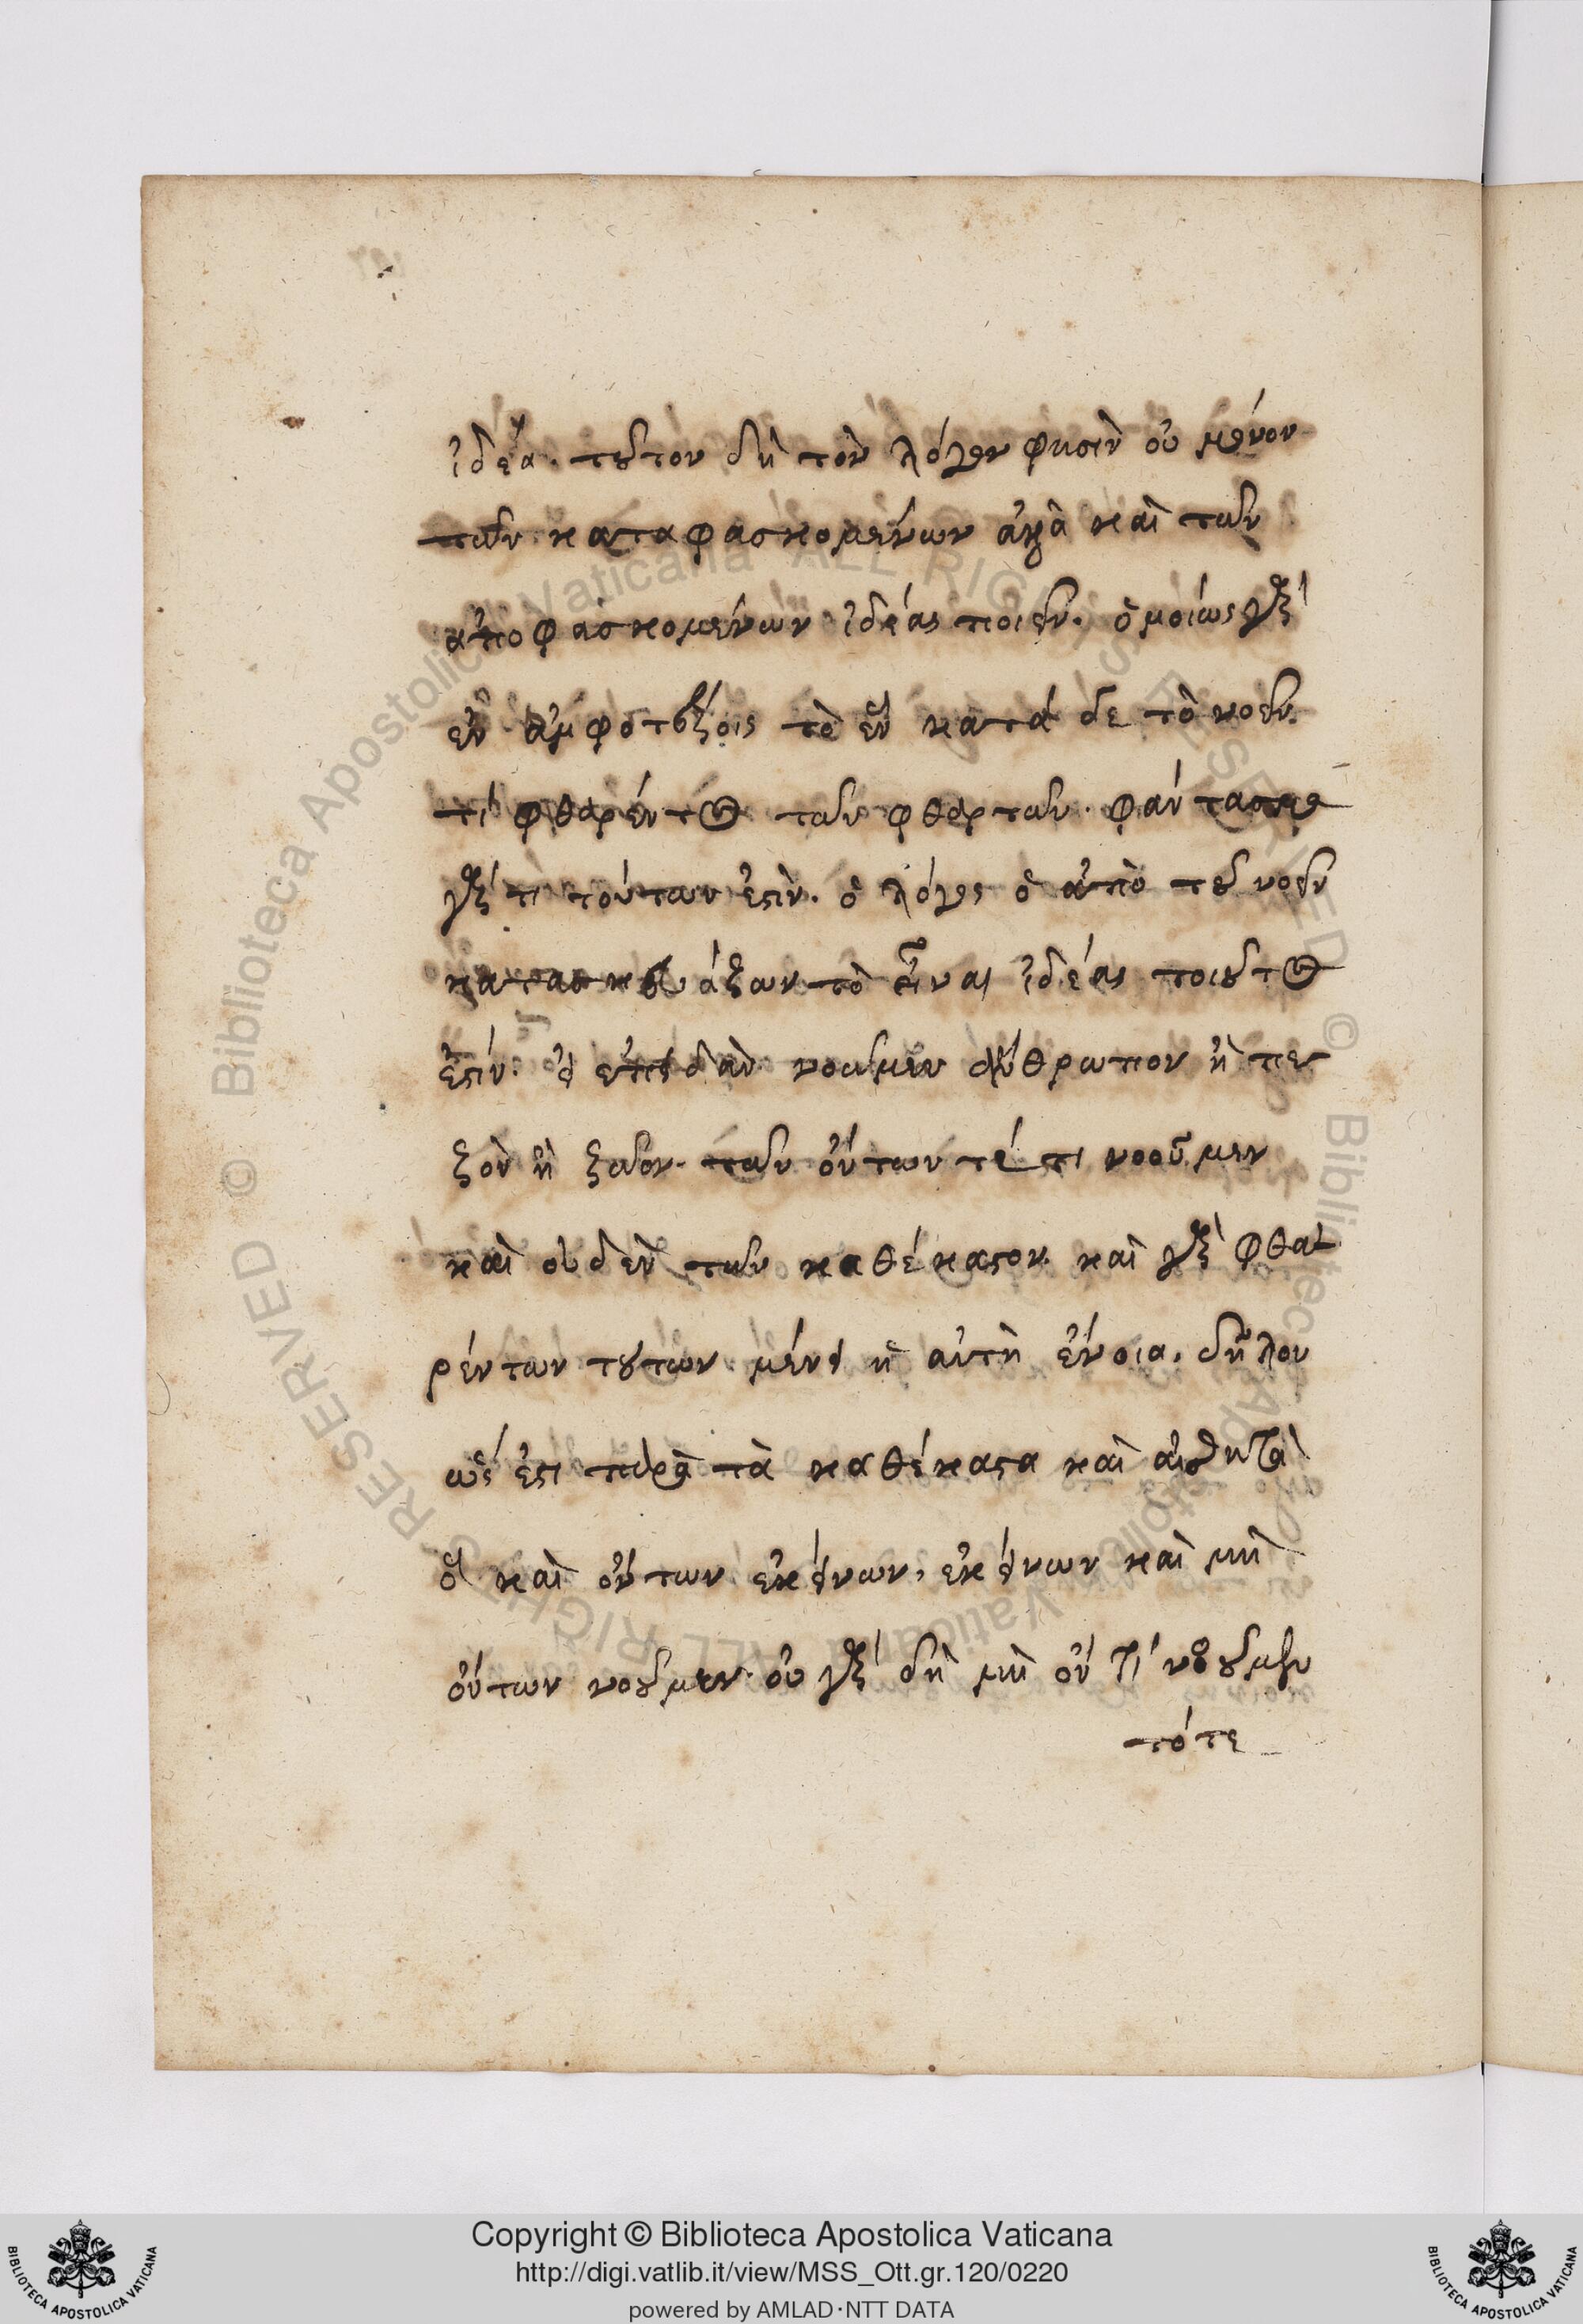 ἰδέα. τοῦτον δὴ τὸν λόγον φησὶν οὐ μόνον
τῶν καταφασκομένων ἀλλὰ καὶ τῶν
ἀποφασκομένων ἰδέας ποιεῖν. ὁμοίως γὰρ
ἐν ἀμφοτέροις τὸ ἓν κατὰ δε τὸ νοεῖν
τι φθαρέντος τῶν φθαρτῶν. φάντασμα
γάρ τι τούτων ἐστὶν. ὁ λόγος ὁ ἀπὸ τοῦ νοεῖν
κατασκευάζων τὸ εἶναι ἰδέας τοιοῦτος
ἐστίν. εἰ ἐπειδὰν νοῶμεν ἄνθρωπον ἢ πε
ζὸν ἢ ζῶον. τῶν ὄντων τέ τι νοοῦμεν
καὶ οὐδὲν τῶν καθέκαστον. καὶ γὰρ φθα
ρέντων τούτων μένει ἡ αὐτὴ ἔννοια. δῆλον
ὡς ἔστι παρὰ τὰ καθέκαστα καὶ αἰσθητὰ
ὃ καὶ ὄντων ἐκείνων, ἐκείνων καὶ μὴ
ὄντων νοοῦμεν. οὐ γὰρ δὴ μὴ ὄν τι νοοῦμεν
τότε
Copyright © Biblioteca Apostolica Vaticana
http://digi.vatlib.it/view/MSS_Ott.gr.120/0220
powered by AMLAD·NTT DATA
BIBLIOTECA APOSTOLICA VATICANA
BIBLIOTECA APOSTOLICA VATICANA
© Biblioteca Apostolica Vaticana ALL RIGHTS RESERVED © Biblioteca Apostolica Vaticana ALL RIGHTS RESERVED